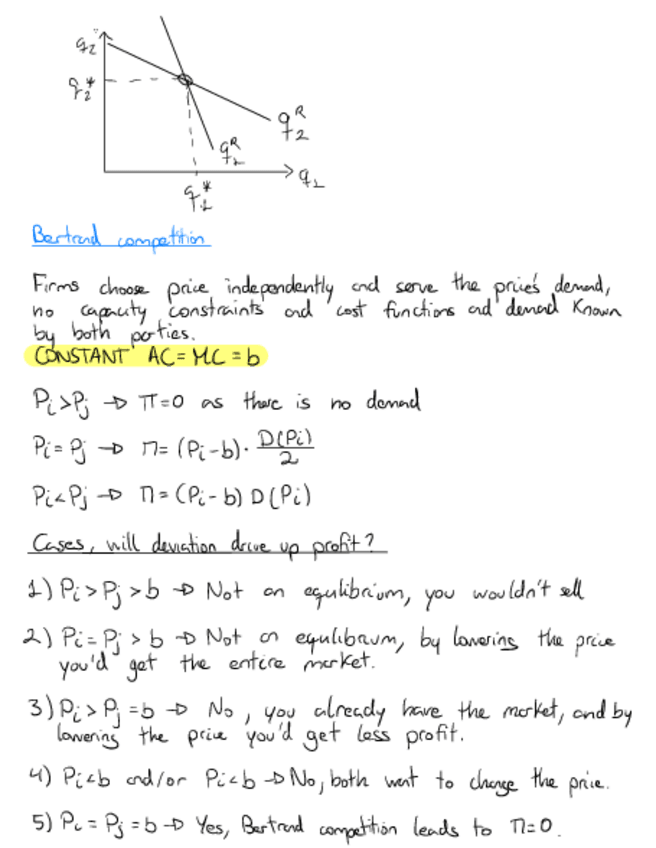 q₂
q₂*
q₂ᴿ
q₁ᴿ
q₁
q₁*
Bertrand competition
Firms choose price independently and serve the price's demand,
no capacity constraints and cost functions and demand known
by both parties.
CONSTANT AC = MC = b
Pᵢ>Pⱼ → π=0 as there is no demand
Pᵢ = Pⱼ → π = (Pᵢ-b) · D(Pᵢ)/2
Pᵢ<Pⱼ → π = (Pᵢ-b) D(Pᵢ)
Cases, will deviation drive up profit?
1) Pᵢ > Pⱼ > b → Not an equlibrium, you wouldn't sell
2) Pᵢ = Pⱼ > b → Not an equlibrium, by lowering the price
you'd get the entire market.
3) Pᵢ > Pⱼ = b → No, you already have the market, and by
lowering the price you'd get less profit.
4) Pᵢ<b and/or Pᵢ<b → No, both want to change the price.
5) Pᵢ = Pⱼ = b → Yes, Bertrand competition leads to π=0.